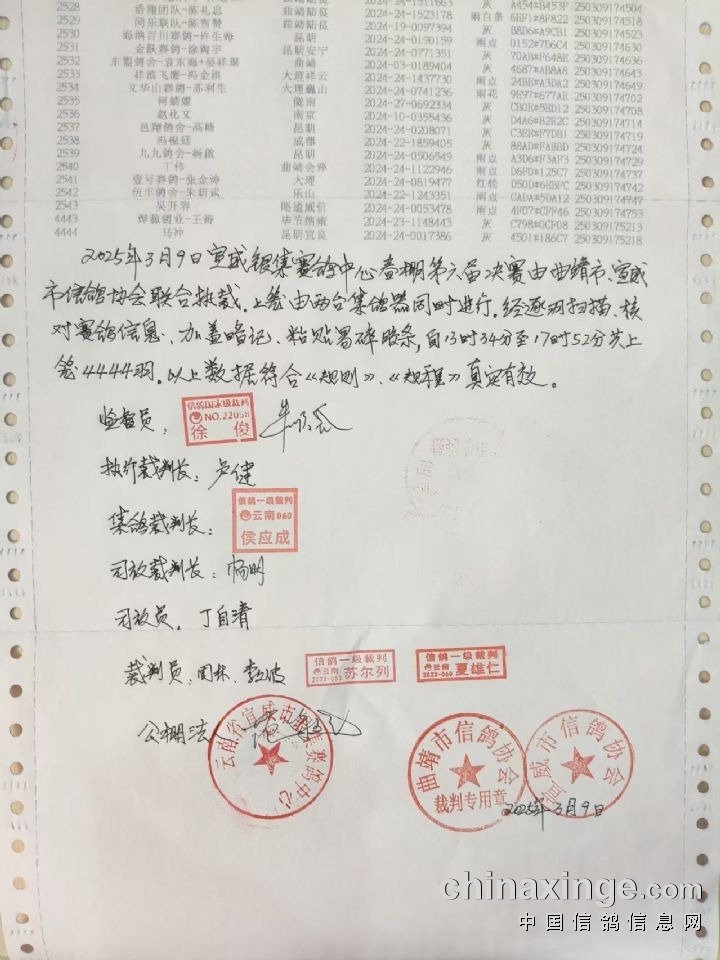 2528 浩翔团队-陈礼忠 曲靖陆良 2024-24-1511663 灰 A454#B453F 250309174504
2529 同乐联队-陈雪赞 曲靖陆良 2024-24-1523178 雨白条 6EF1#8F822 250309174518
2530 海纳百川赛鸽-许生海 昆明 2024-19-0097394 灰 B8D6#A9CB1 250309174526
2531 金跃赛鸽-涂海宇 昆明安宁 2024-24-0190159 雨点 0152#7D6C4 250309174630
2532 东盟鸽舍-袁东海+晏祥琨 曲靖 2024-24-0771351 灰 70AB#F648E 250309174636
2533 祥滇飞鹰-冯金祺 大理祥云 2024-03-0189404 灰 4687#AB8A8 250309174643
2534 文华山赛鸽-苏利生 大理巍山 2024-24-1437730 雨点 24BE#A3DA2 250309174644
2535 何婧媛 陇南 2024-24-0741236 雨花 9E97#677AE 250309174703
2536 赵化文 南京 2024-27-0692334 灰 CB0B#5ED12 250309174708
2537 邑翔鸽舍-高峰 昆明 2024-10-0355436 灰 D4A6#B2E2C 250309174714
2538 冯根廷 成都 2024-24-0208071 灰 C3EB#F7DB1 250309174719
2539 九九鸽会-杨啟 昆明 2024-22-1859405 灰 88AD#FABBD 250309174737
2540 丁伟 曲靖会泽 2024-24-0506549 雨点 A3D6#F3AF3 250309174739
2541 壹号赛鸽-张金涛 大理 2024-24-1122946 雨点 D6F0#125C7 250309174741
2542 伍丰鸽舍-朱明武 乐山 2024-24-0819477 红轮 D50D#6EBFC 250309174742
2543 吴开容 昭通威信 2024-22-1331244 雨点 CADA#5DA12 250309174747
4443 烨源鸽业-王涛 毕节纳雍 2024-24-0053478 雨点 4F07#CFF46 250309174753
4444 马冲 昆明宜良 2024-23-1148443 灰 C798#0CF08 250309175218
2024-24-0017386 灰 4501#186C7 250309175219
2025年3月9日宣威银集赛鸽中心春棚第六届决赛由曲靖市、宣威
市信鸽协会联合执裁。上笼由两台集鸽器同时进行。经逐羽扫描、核
对赛鸽信息、加盖暗记、粘贴易碎胶条,自13时34分至17时52分共上
笼4444羽。以上数据符合《规则》、《规程》真实有效。
监督员:
信鸽国家级裁判
NO.22058
徐俊
执行裁判长:卢健
集鸽裁判长:
信鸽一级裁判
云南060
侯应成
司放裁判长:杨明
司放员:丁自清
裁判员:周林、
信鸽一级裁判
云南
2023-053
苏尔列
信鸽一级裁判
云南
2023-060
夏雄仁
公棚法人
云南省宣威市银集赛鸽中心
曲靖市信鸽协会
裁判专用章
宣威市信鸽协会
2025年3月9日
chinaxinge.com
中国信鸽信息网